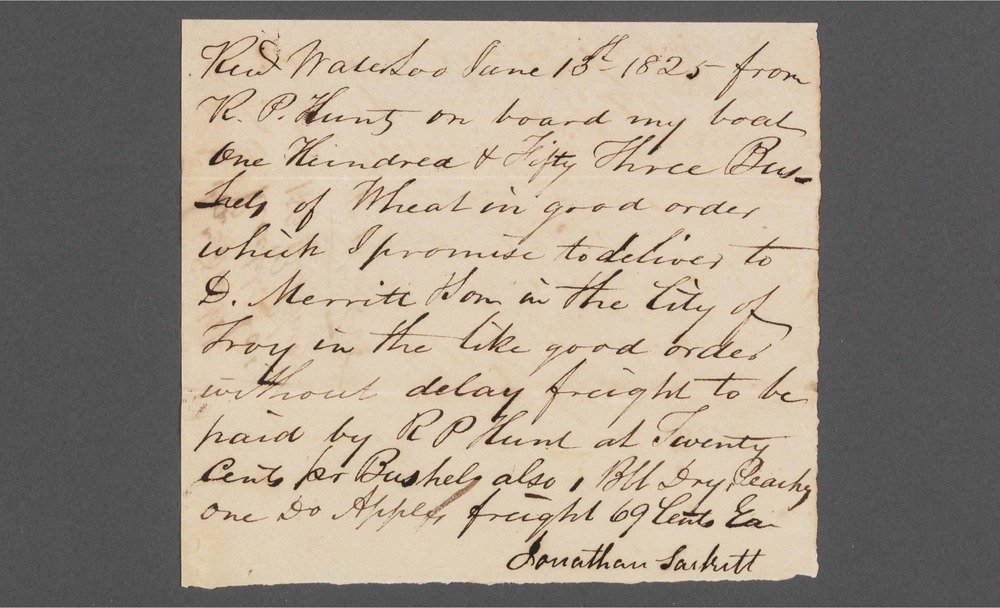 Recd Waterloo June 13th 1825 from
R. P. Hunt on board my boat
One Hundred & Fifty Three Bus-
hels of Wheat in good order
which I promise to deliver to
D. Merritt in the City of
Troy in the like good order
without delay freight to be
paid by R P Hunt at Twenty
Cents per Bushels also 1 Bbl Dry Peaches
one Do Apples freight 69 Cents Ea
Jonathan